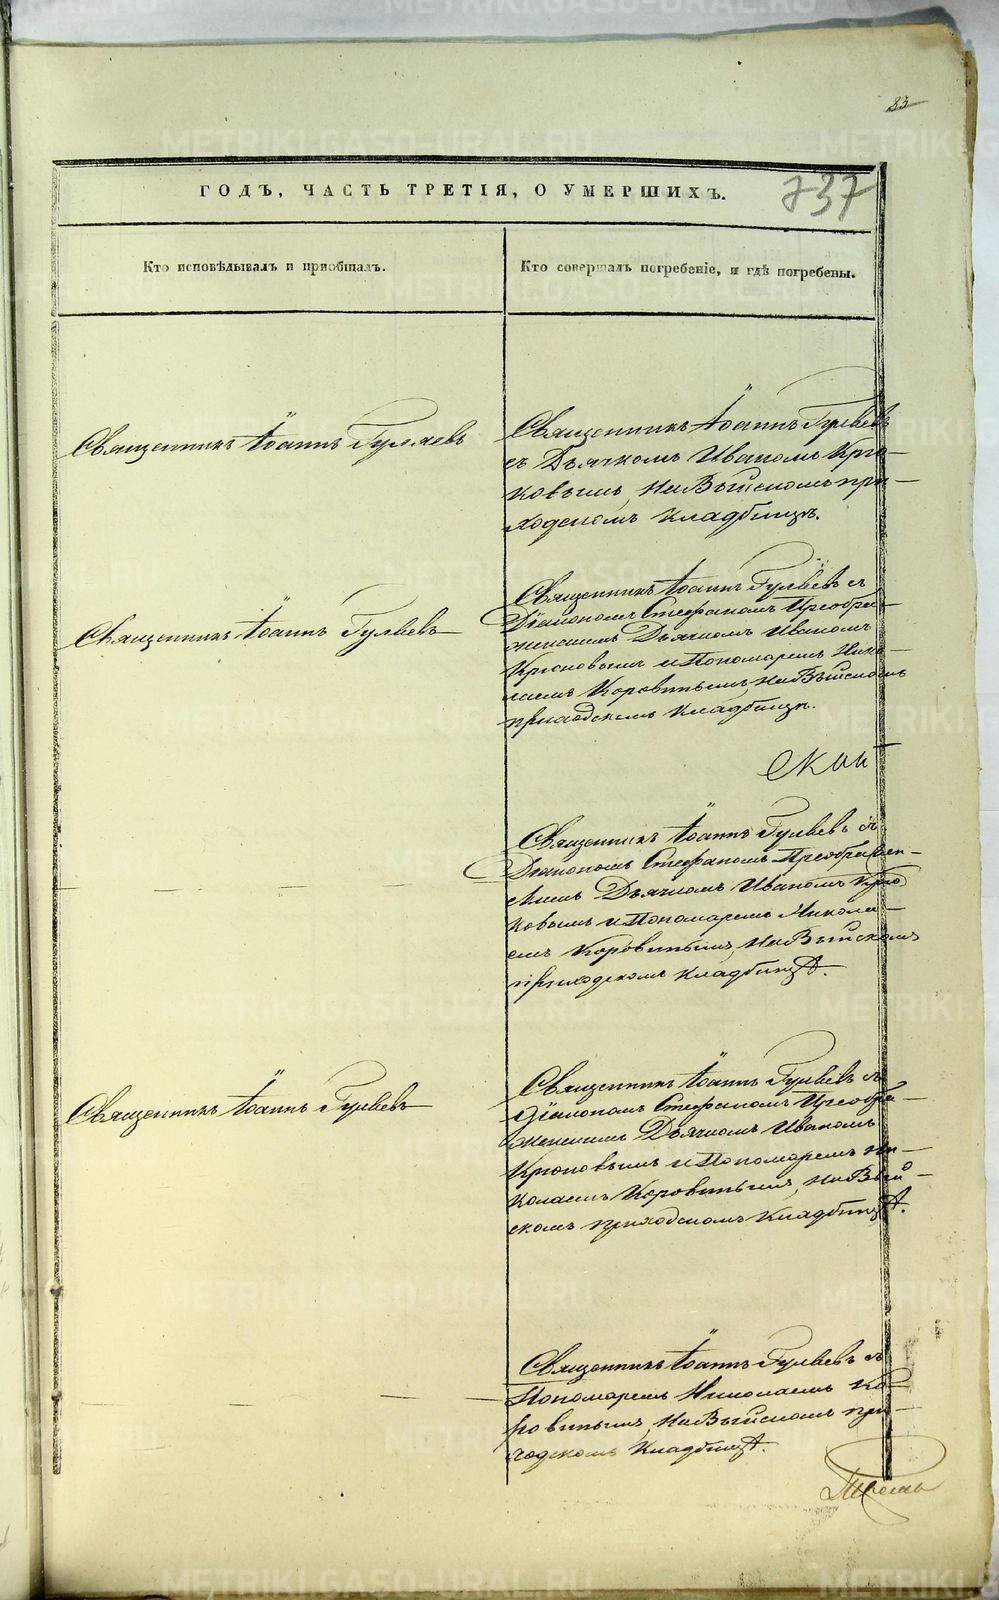 83
737
ГОДЪ, ЧАСТЬ ТРЕТІЯ, О УМЕРШИХЪ.
Кто исповѣдывалъ и пріобщалъ.
Кто совершалъ погребеніе, и гдѣ погребены.
Священникъ Іоаннъ Гуляевъ
Священникъ Іоаннъ Гуляевъ
съ Дьячкомъ Иваномъ Крю-
ковымъ, на Выйскомъ при-
ходскомъ кладбищѣ.
Священникъ Іоаннъ Гуляевъ
Священникъ Іоаннъ Гуляевъ съ
Діакономъ Стефаномъ Преобра-
женскимъ Дьячкомъ Иваномъ
Крюковымъ и Пономаремъ Нико-
лаемъ Коровинымъ, на Выйскомъ
приходскомъ кладбищѣ.
Священникъ Іоаннъ Гуляевъ съ
Діакономъ Стефаномъ Преображен-
скимъ Дьячкомъ Иваномъ Крю-
ковымъ и Пономаремъ Никола-
емъ Коровинымъ, на Выйскомъ
приходскомъ кладбищѣ.
Священникъ Іоаннъ Гуляевъ
Священникъ Іоаннъ Гуляевъ съ
Діакономъ Стефаномъ Преобра-
женскимъ Дьячкомъ Иваномъ
Крюковымъ и Пономаремъ Ни-
колаемъ Коровинымъ, на Вый-
скомъ приходскомъ кладбищѣ.
Священникъ Іоаннъ Гуляевъ съ
Пономаремъ Николаемъ Ко-
ровинымъ, на Выйскомъ при-
ходскомъ кладбищѣ.
METRIKI.GASO-URAL.RU